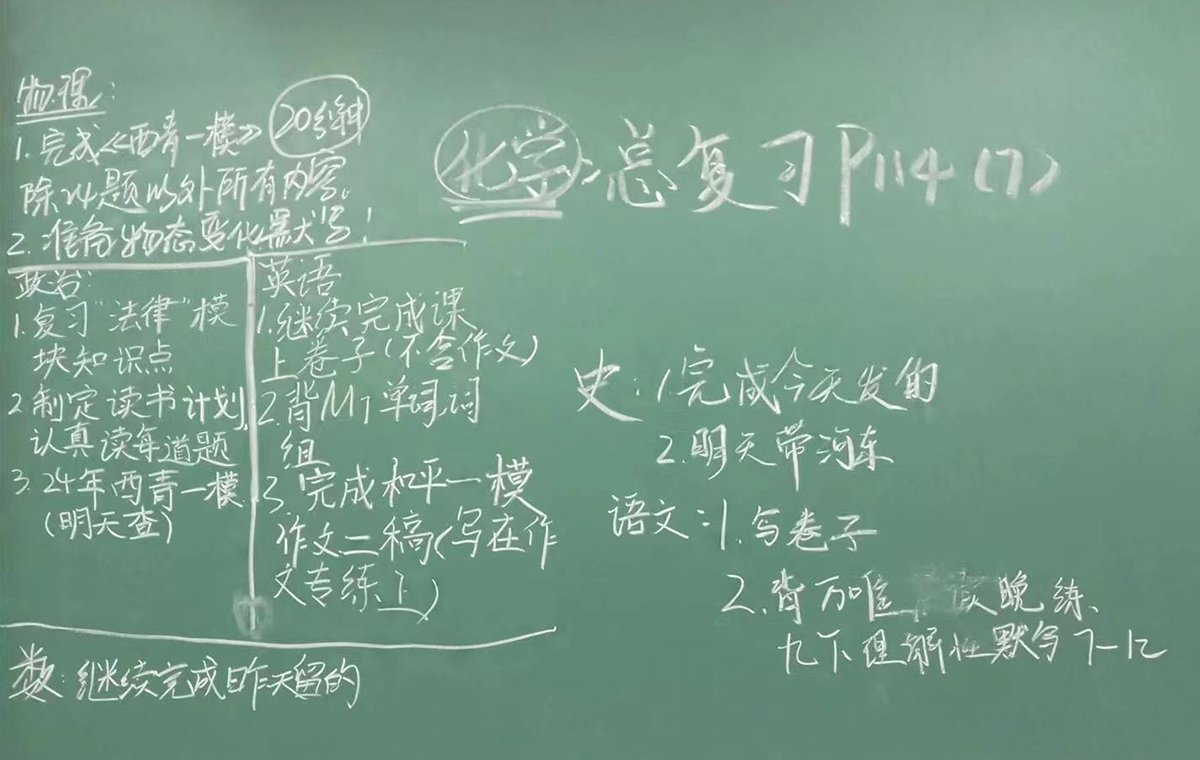 物理:
1.完成《西青一模》 20分钟
除24题以外所有内容。
2.准备物态变化默写!
化学:总复习P114(7)
政治:
1.复习"法律"模
块知识点
2.制定读书计划,
认真读每道题
3.24年西青一模
(明天查)
英语
1.继续完成课
上卷子(不含作文)
2.背M7单词,词
组
3.完成和平一模
作文二稿(写在作
文专练上)
史:1.完成今天发的
2.明天带河东
语文:1.写卷子
2.背万唯 晚练、
九下理解性默写7-12
数:继续完成昨天留的